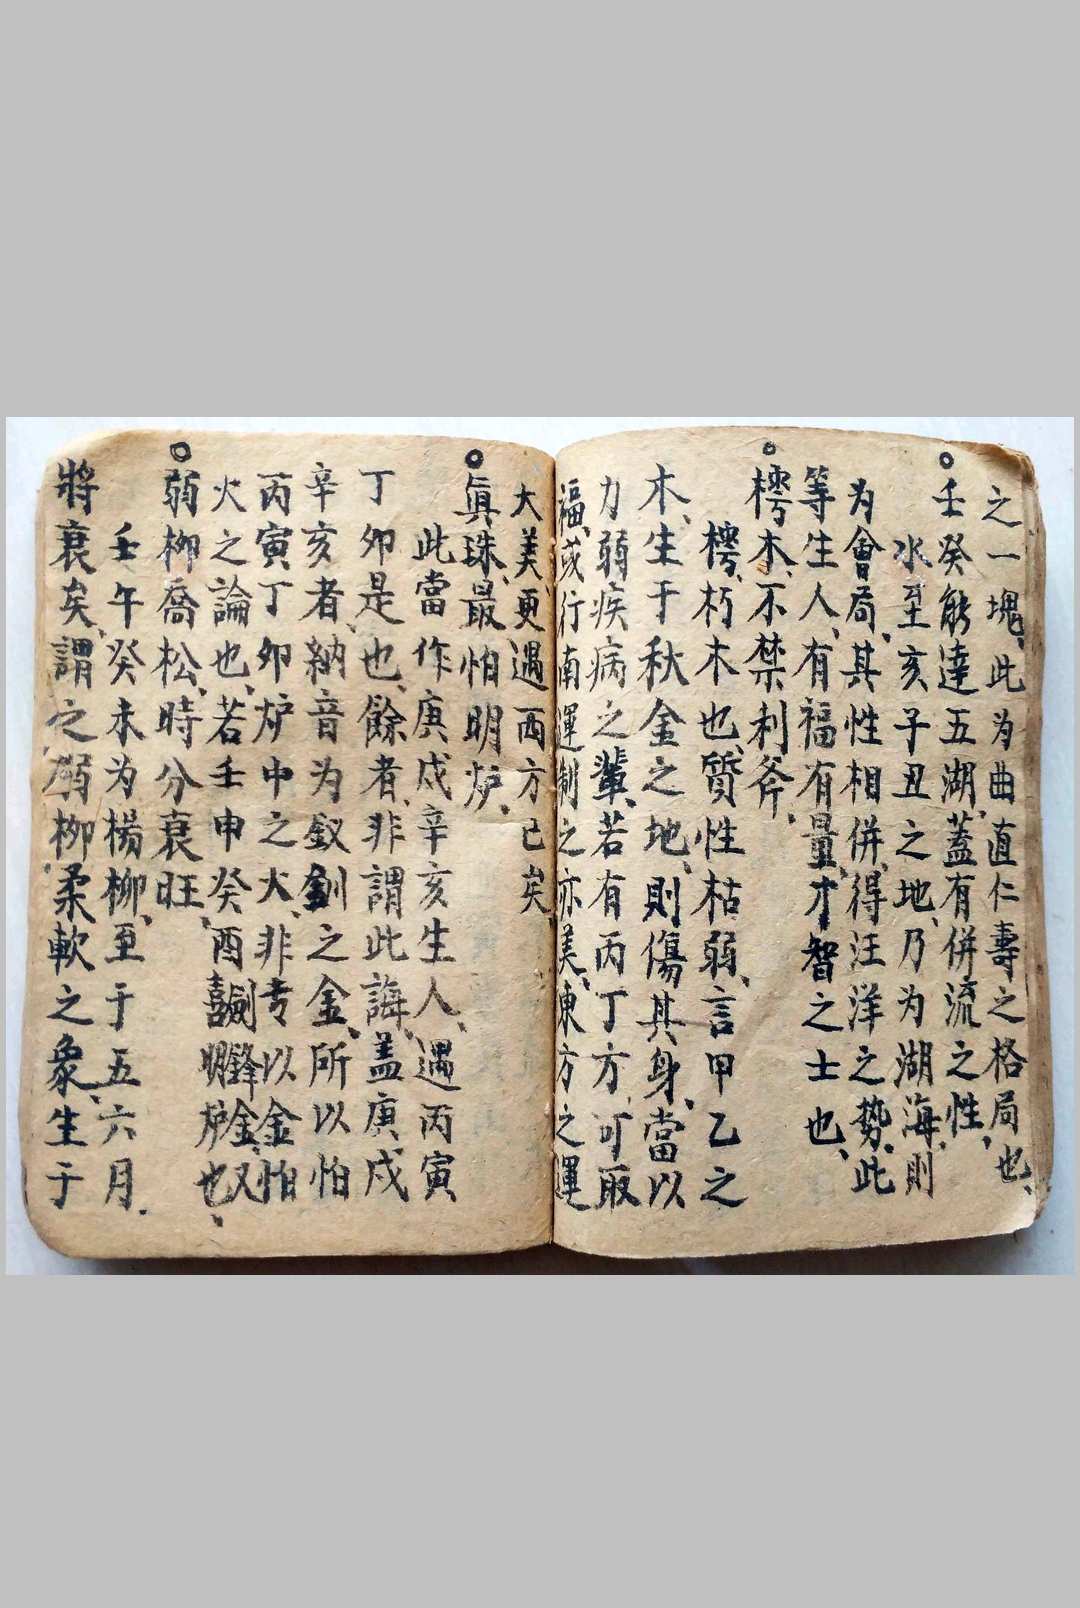 之一塊、此为曲直仁壽之格局也、
○壬癸能達五湖、蓋有併流之性、
水至亥子丑之地、乃为湖海、則
为會局、其性相併、得汪洋之势、此
等生人、有福有量、才智之士也、
○樗木、不禁利斧、
樗、朽木也、質性枯弱、言甲乙之
木、生于秋金之地、則傷其身、當以
力弱疾病之輩、若有丙丁方、可取
福、或行南運制之亦美、東方之運
大美、更遇西方已矣、
○真珠、最怕明炉、
此當作庚戍辛亥生人、遇丙寅
丁夘是也、餘者、非謂此誨、盖庚、戍
辛亥者、納音为釵釧之金、所以怕
丙寅丁夘炉中之火、非专以金怕
火之論也、若壬申癸酉劍鋒金、又喜明炉也、
○弱柳喬松、時分衰旺、
壬午癸未为楊柳、至于五六月、
將衰矣、謂之弱柳、柔軟之象、生于